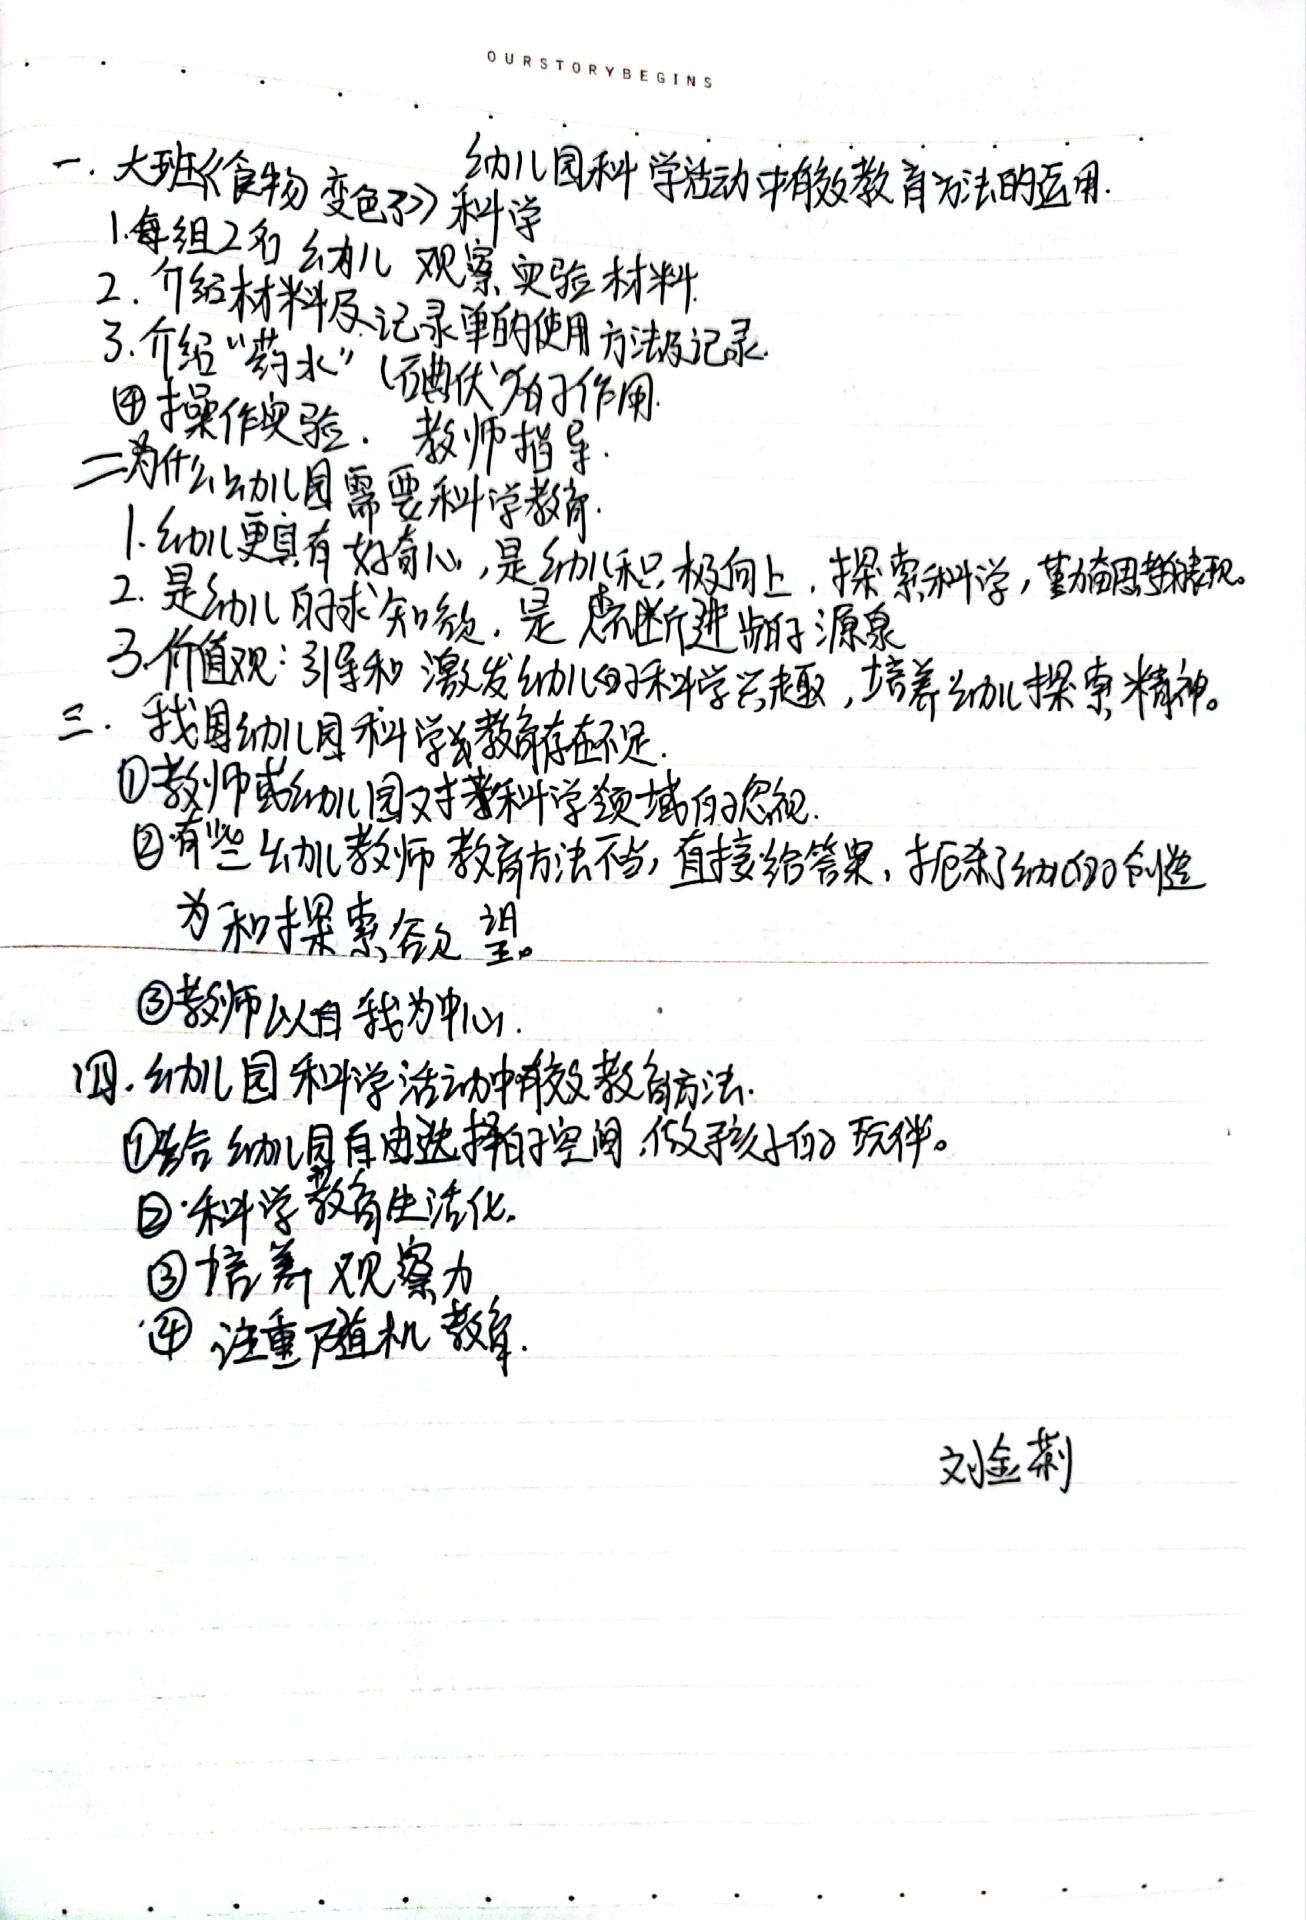 OURSTORYBEGINS
幼儿园科学活动中有效教育方法的运用.
一. 大班《食物变色了》科学
1.每组2名幼儿 观察实验材料.
2. 介绍材料及记录单的使用方法及记录.
3.介绍“药水”(碘伏)的作用.
④操作实验. 教师指导.
二为什么幼儿园需要科学教育.
1.幼儿更具有好奇心,是幼儿积极向上,探索科学,勤奋思考表现。
2. 是幼儿的求知欲,是不断进步的源泉
3.价值观:引导和激发幼儿的科学兴趣,培养幼儿探索精神。
三. 我国幼儿园科学教育存在不足.
①教师或幼儿园对科学领域的忽视.
②有些幼儿教师教育方法不当,直接给答案,扼杀了幼儿的创造
为和探索欲望。
③教师以自我为中心.
四.幼儿园科学活动中有效教育方法.
①给幼儿园自由选择的空间,做孩子的玩伴。
②.科学教育生活化.
③培养观察力
④ 注重随机教育.
刘金